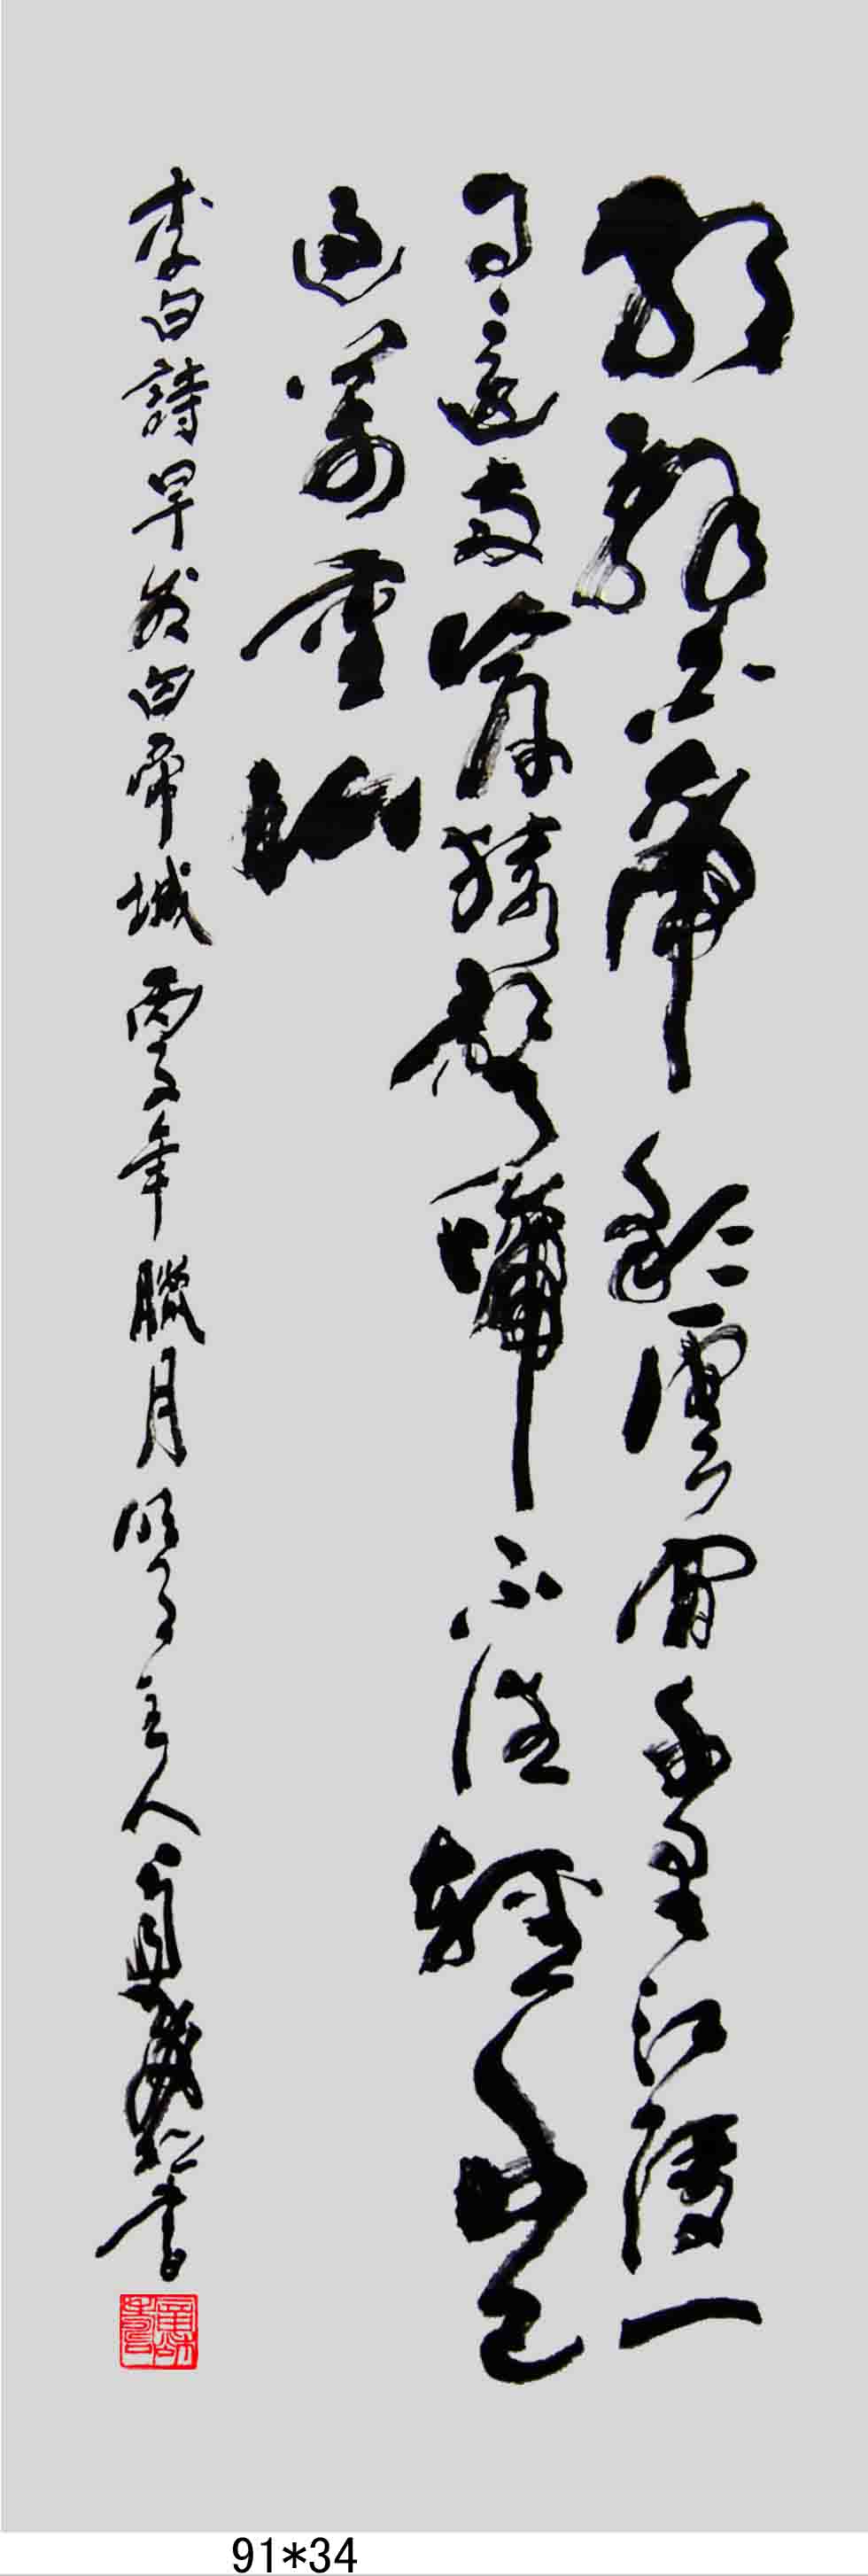 朝辭白帝彩雲間千里江陵一
日還兩岸猿聲啼不住輕舟已
過萬重山
李白詩早發白帝城 臘月 主人 書
91*34